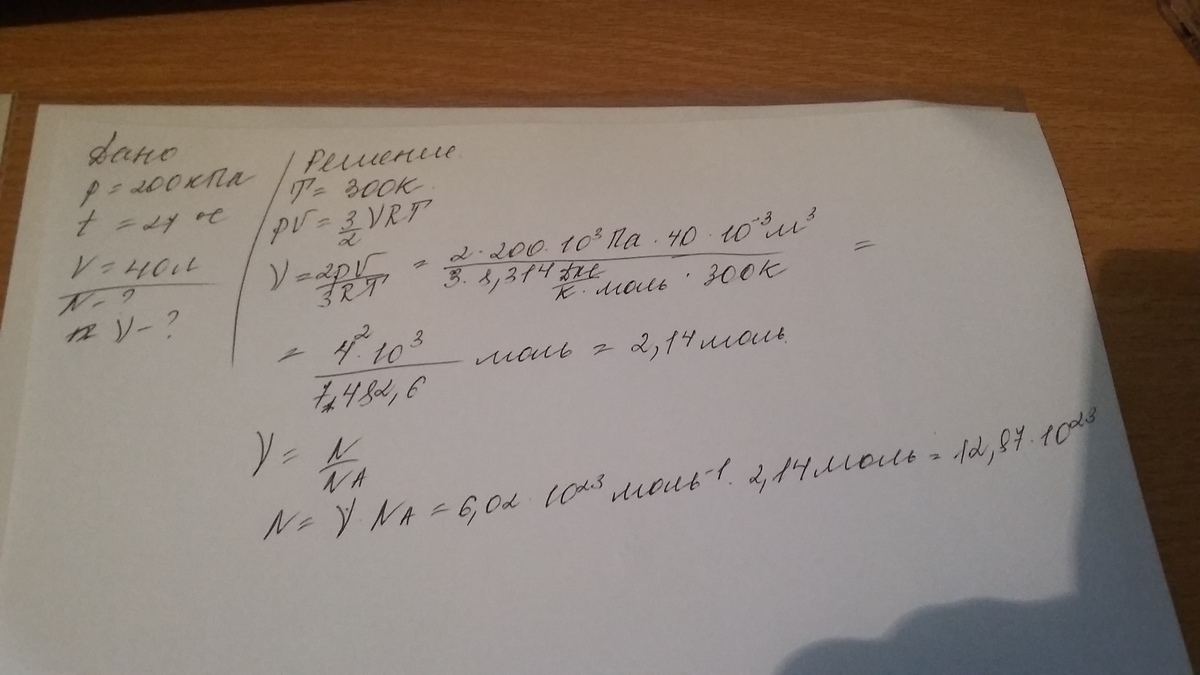 Дано
p = 200 кПа
t = 27 °C
V = 40 л
N - ?
ν - ?
Решение.
T = 300К.
pV = 3/2 νRT
ν = 2pV/3RT = 2 · 200 · 10³ Па · 40 · 10⁻³ м³ / 3 · 8,314 Дж/К · моль · 300К =
= 4² · 10³ / 7482,6 моль = 2,14 моль.
ν = N/NA
N = ν · NA = 6,02 · 10²³ моль⁻¹ · 2,14 моль = 12,87 · 10²³